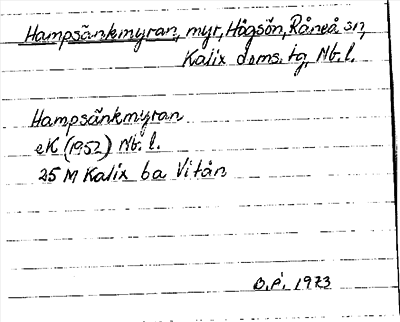 Hampsänkmyran, myr, Högsön, Råneå sn,
Kalix doms. tg, Nb. l.
Hampsänkmyran
eK (1952) Nb. l.
25 M Kalix ba Vitån
B.P. 1973